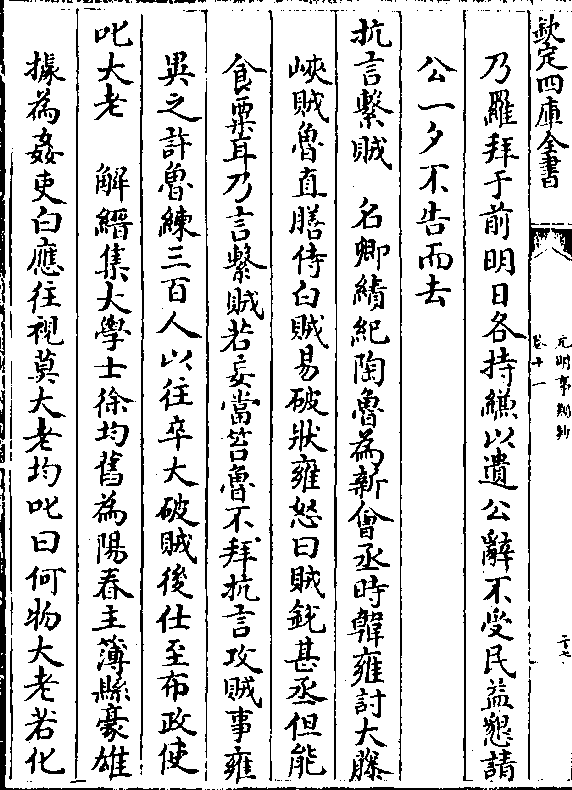 欽定四庫全書
元明事類鈔
卷十一
乃羅拜于前明日各持縑以遺公辭不受民益懇請
公一夕不告而去
抗言繫賊　名卿績紀陶魯為新會丞時韓雍討大籐
峽賊魯直膳侍白賊易破狀雍怒曰賊鋭甚丞但能
食粟耳乃言繫賊若妄當笞魯不拜抗言攻賊事雍
異之許魯練三百人以往卒大破賊後仕至布政使
叱大老　解縉集大學士徐均舊為陽春主簿縣豪雄
據為姦吏白應往視莫大老均叱曰何物大老若化